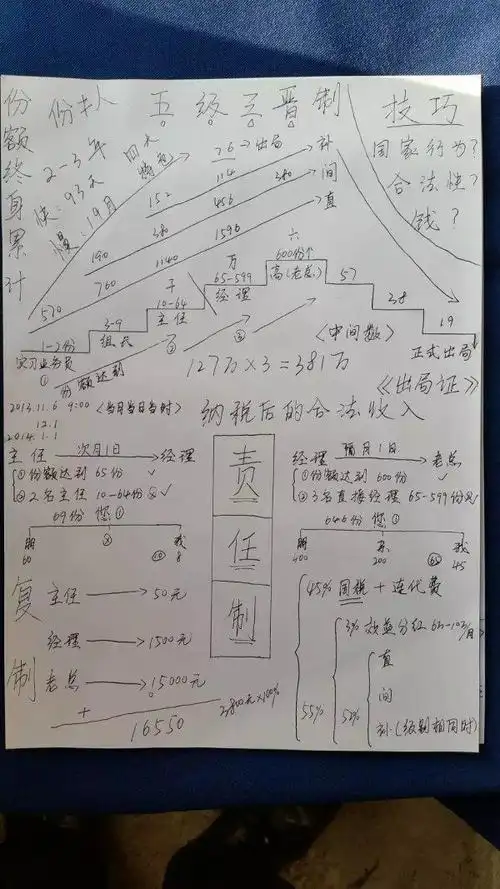 份额终身累计
份 人 五级三晋制 技巧
2-3年
快:93天
慢:19月
四大
76 出局
国家行为?
合法性?
钱?
152 114 补
190 380 456 380 间
570 760 1140 1596 直
1-2份
实习业务员
①
3-9
组长
10-64
主任
②
万
65-599
经理
③
六
600份个
高(老总)
57
38
19
正式出局
份额达到
〈中间数〉
127万×3=381万
《出局证》
2013.11.6 9:00〈当月当日当时〉
12.1
2014.1.1
纳税后的合法收入
主任 次月1日 经理
①份额达到65份 ✓
②2名主任10-64份 ✓
69份 您①
60 8
经理 隔月1日 老总
①份额达到600份 ✓
②3名直接经理65-599份
646份 您①
400 200 45
责任制
复制
主任 → 50元
经理 → 1500元
老总 → 15000元
+
16550
3800元×100%
45% 国税+连代费
55%
3% 效益分红
52%
直
间
补(级别相同时)